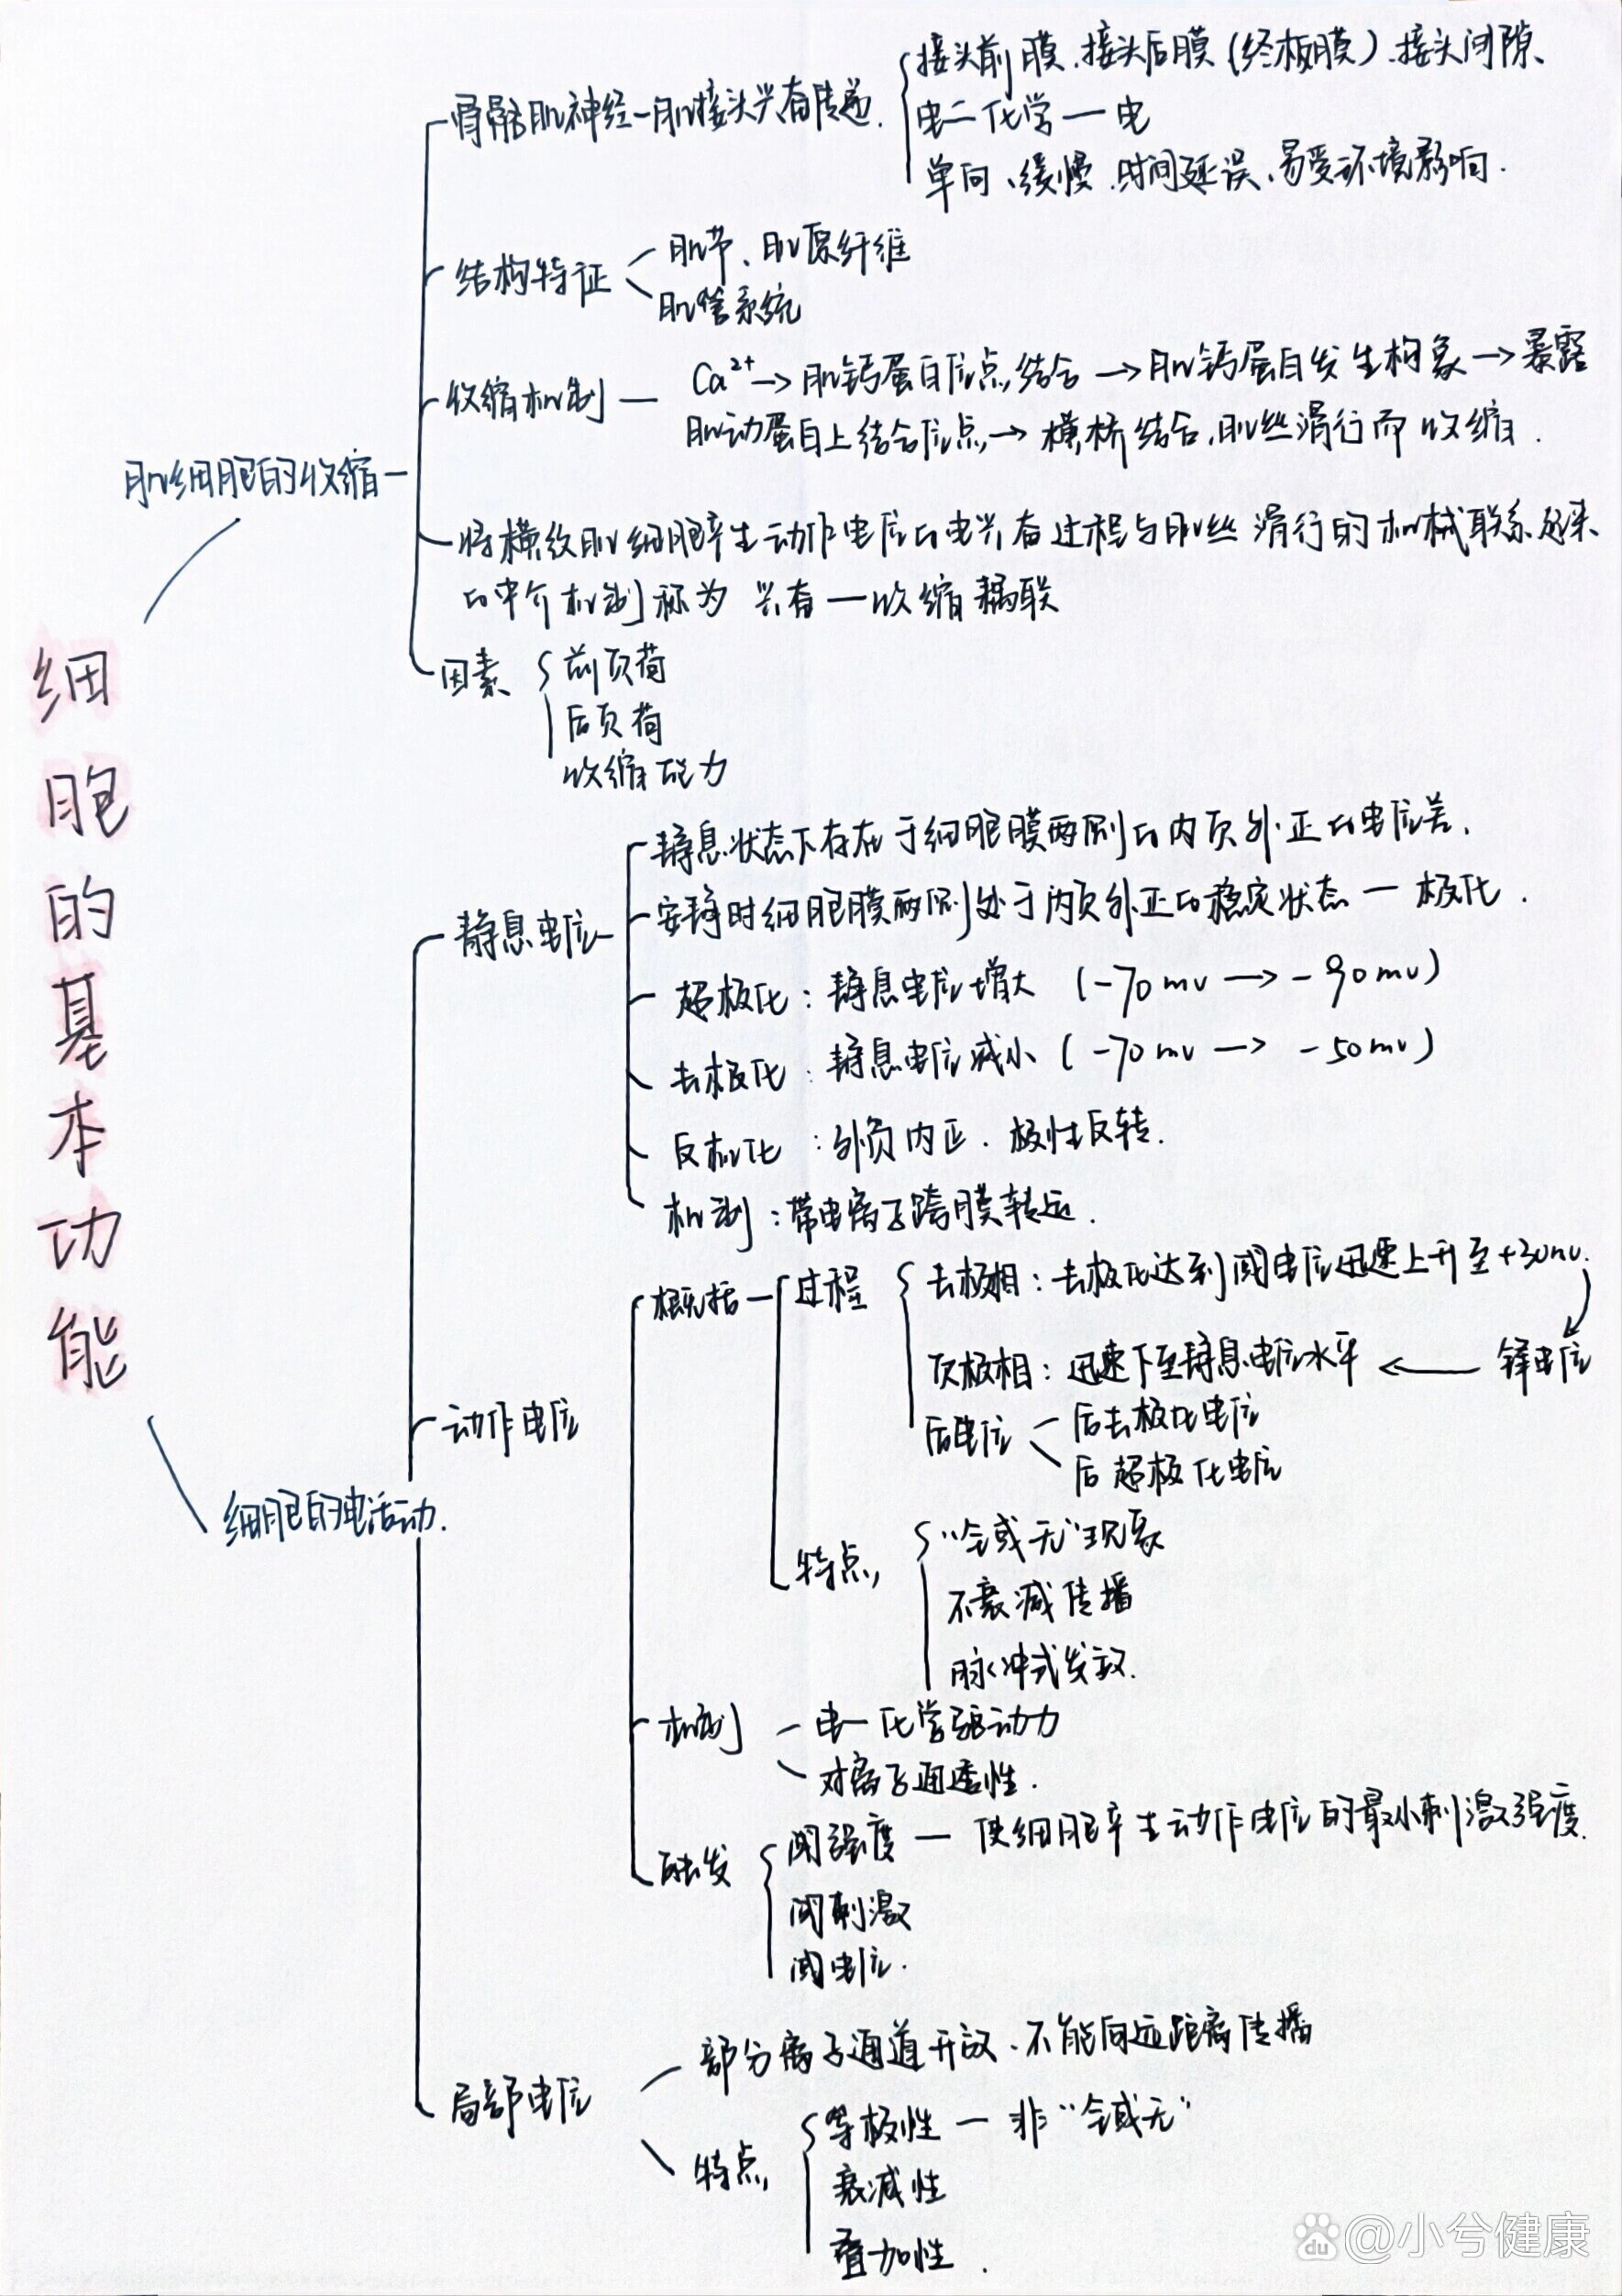 细胞的基本功能
肌细胞的收缩
骨骼肌神经-肌接头兴奋传递.
接头前膜、接头后膜(终板膜)、接头间隙、
电二化学一电
单向、缓慢、时间延误、易受环境影响.
结构特征
肌节、肌原纤维
肌管系统
收缩机制 —
Ca²⁺→肌钙蛋白位点结合→肌钙蛋白发生构象→暴露
肌动蛋白上结合位点→横桥结合,肌丝滑行而收缩.
将横纹肌细胞产生动作电位的电兴奋过程与肌丝滑行的机械联系起来
的中介机制称为 兴奋—收缩耦联
因素
前负荷
后负荷
收缩能力
细胞的电活动.
静息电位
静息状态下存在于细胞膜两侧的内负外正的电位差.
安静时细胞膜两侧处于内负外正的稳定状态 — 极化.
超极化:静息电位增大 (-70mv → -90mv)
去极化:静息电位减小 (-70mv → -50mv)
反极化:外负内正.极性反转.
机制:带电离子跨膜转运.
动作电位
概括
过程
去极相:去极化达到阈电位迅速上升至+30mv.
复极相:迅速下至静息电位水平 ← 锋电位
后电位
后去极化电位
后超极化电位
特点
“全或无”现象
不衰减传播
脉冲式发放.
机制
电一化学驱动力
对离子通透性.
触发
阈强度 — 使细胞产生动作电位的最小刺激强度.
阈刺激
阈电位.
局部电位
部分离子通道开放、不能向远距离传播
特点
等极性 — 非“全或无”
衰减性
叠加性.
du @小兮健康